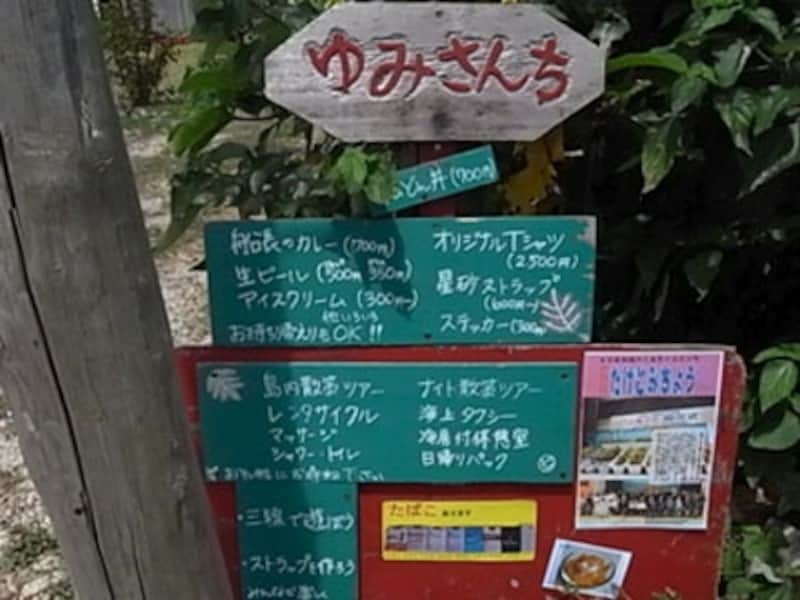 ゆみさんち
うどん丼(700円)
船長のカレー(700円)
生ビール(500円 350円)
アイスクリーム(300円)
他いろいろ
お持ち帰りもOK!!
オリジナルTシャツ
(2,500円)
星砂ストラップ
(600円〜)
ステッカー(300円)
島内散策ツアー
レンタサイクル
マッサージ
シャワー・トイレ
ナイト散策ツアー
海上タクシー
冷房付休憩室
日帰りパック
たけとみちょう
・三線で遊ぼう
・ストラップを作ろう
たばこ